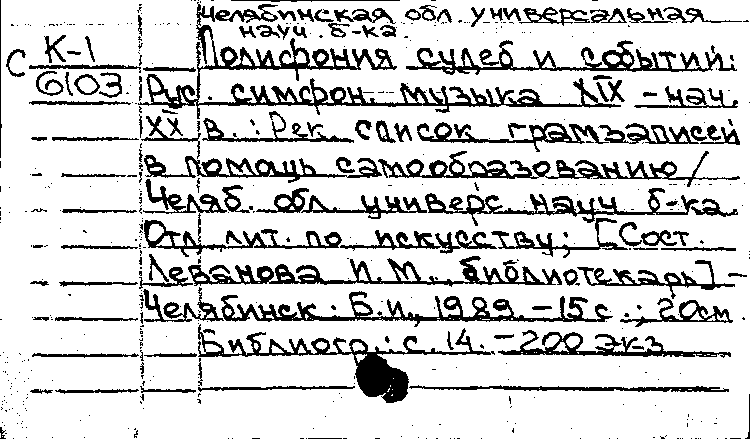 Челябинская обл. универсальная
науч. б-ка.
С К-1
6103
Полифония судеб и событий:
Рус. симфон. музыка XIX - нач.
XX в.: Рек. список грамзаписей
в помощь самообразованию /
Челяб. обл. универс. науч б-ка.
Отд. лит. по искусству; [Сост.
Леванова И.М., библиотекарь] -
Челябинск: Б.и., 1989. - 15 с.; 20 см.
Библиогр.: с. 14. - 200 экз